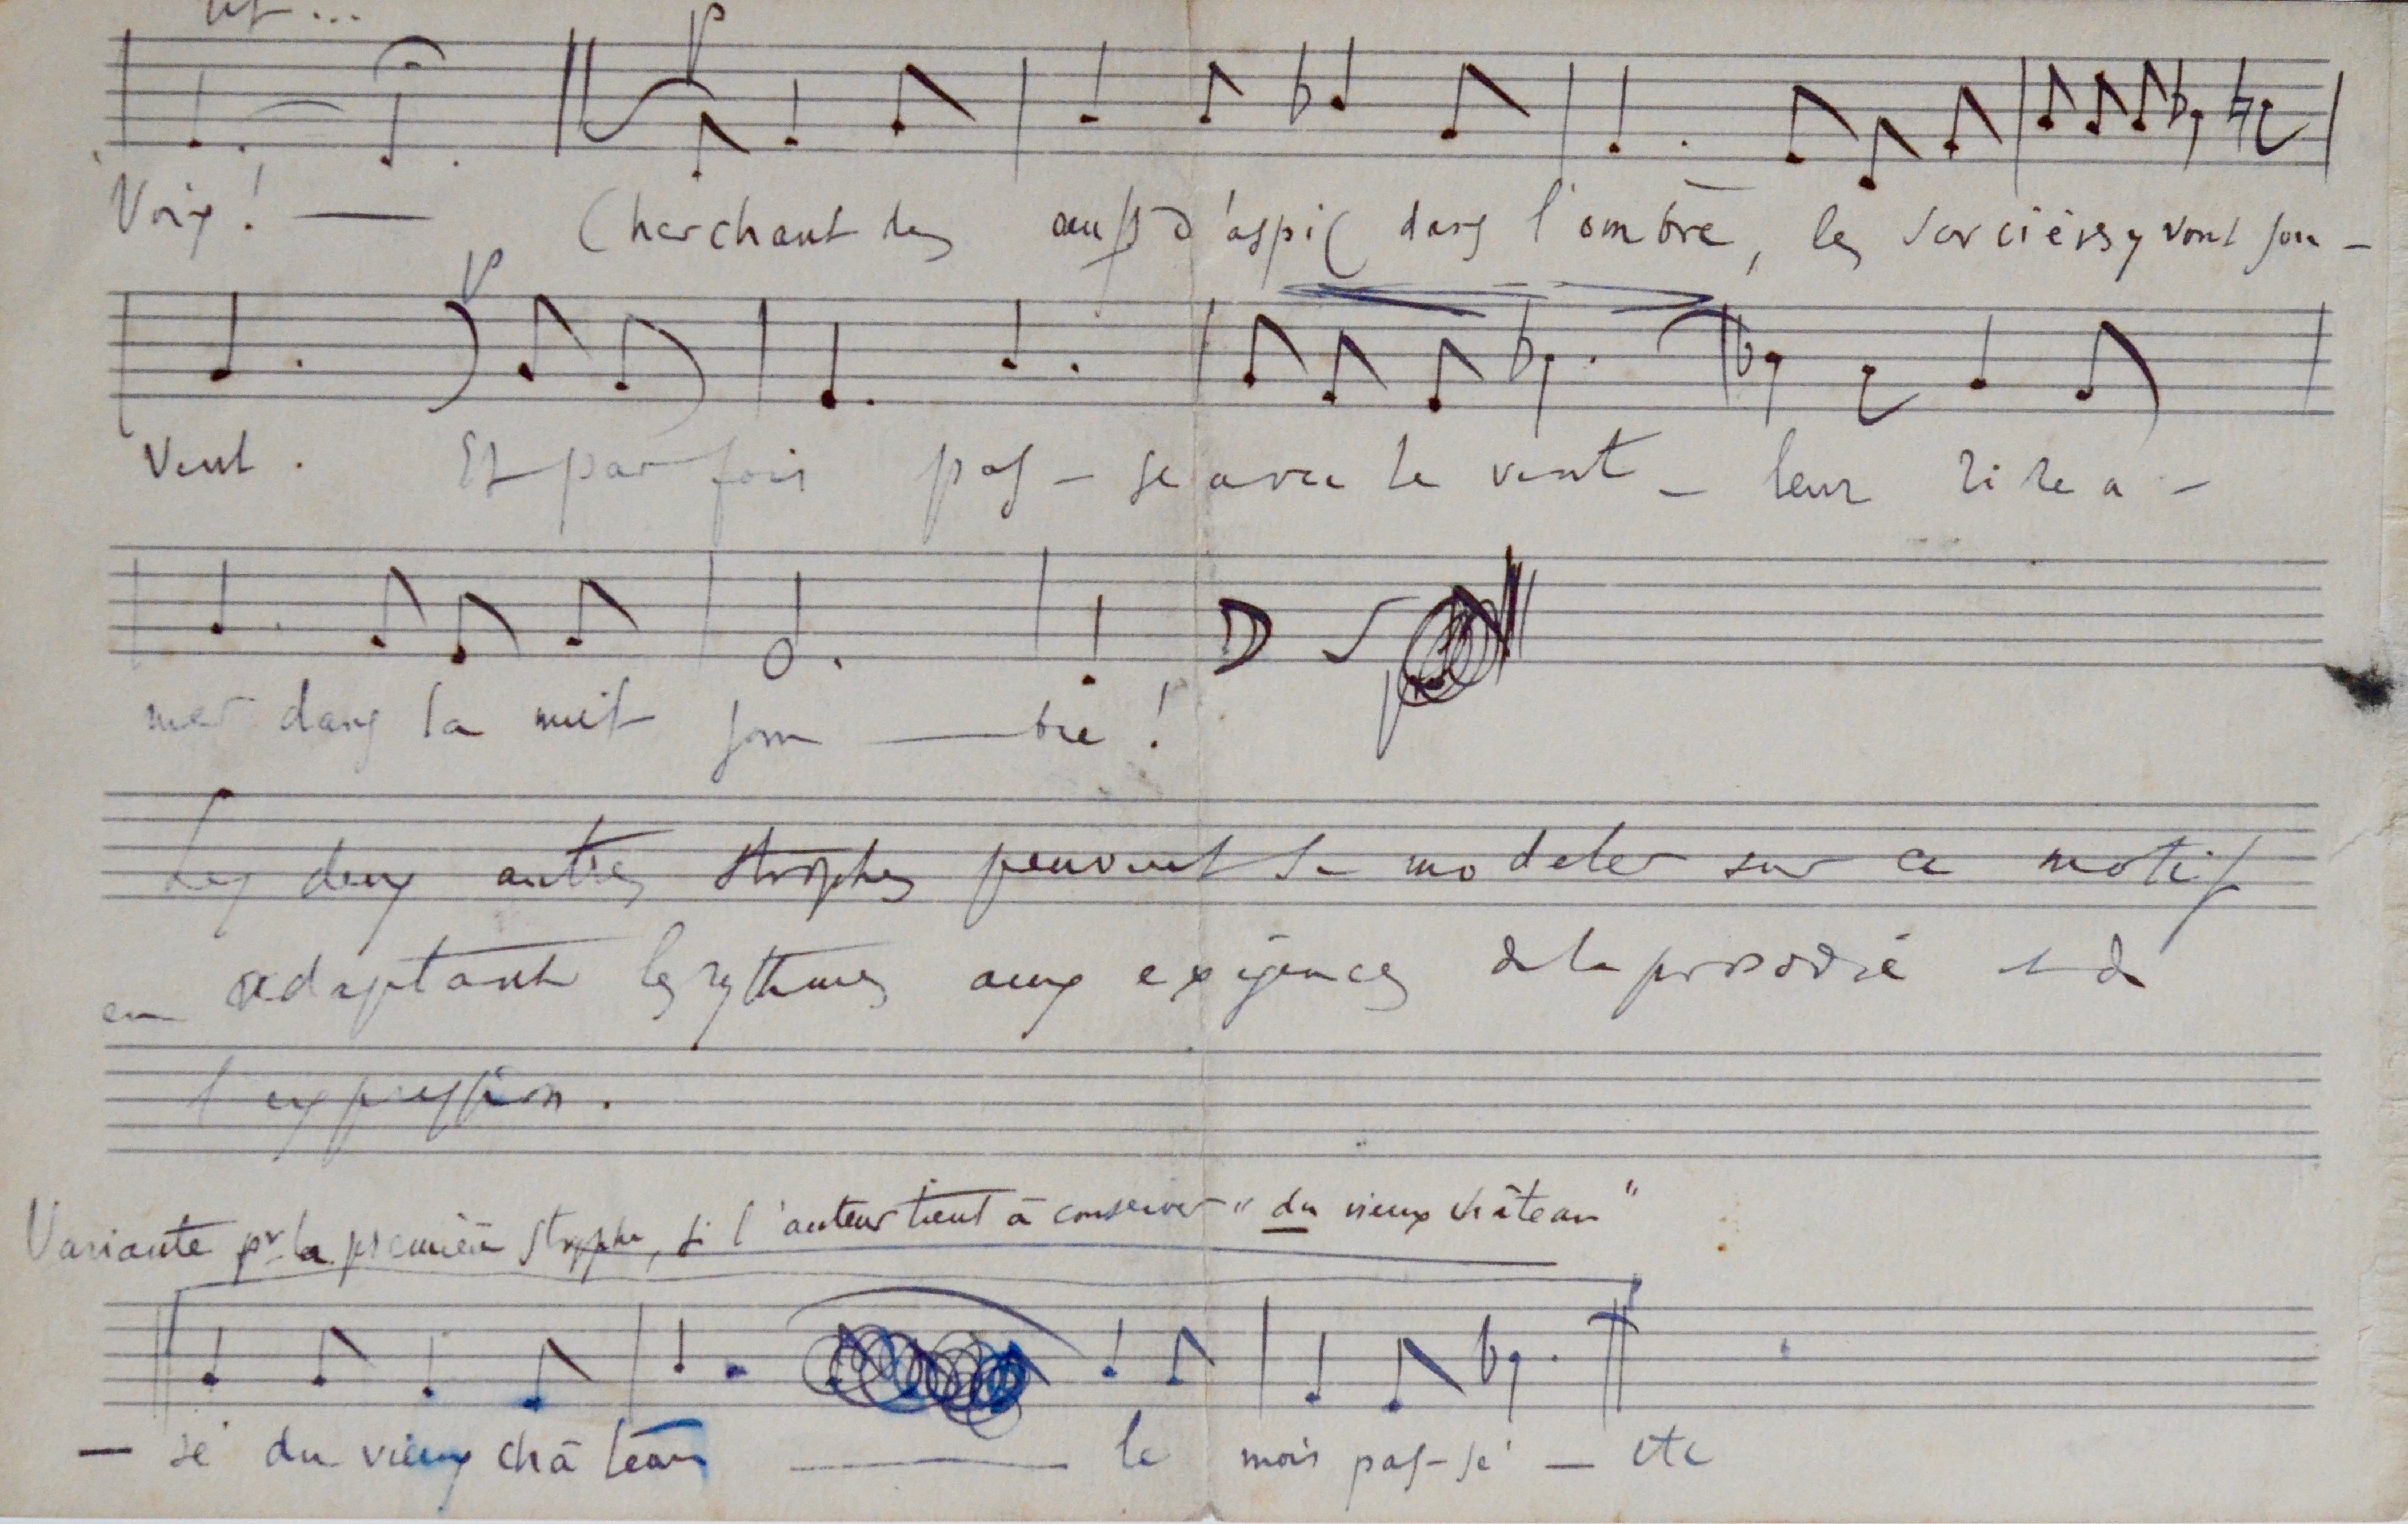 Voix ! —
Cherchant des œufs d'aspic dans l'ombre, les sorcières y vont sou -
vent . Et parfois pas - se avec le vent - leur rire a -
mer dans la nuit som — bre !
Les deux autres strophes peuvent se modeler sur ce motif
en adaptant les rythmes aux exigences de la prosodie et de
l'expression .
Variante pr la première strophe, si l'auteur tient à conserver " du vieux château "
— sé du vieux châ teau — le mois pas-sé — etc